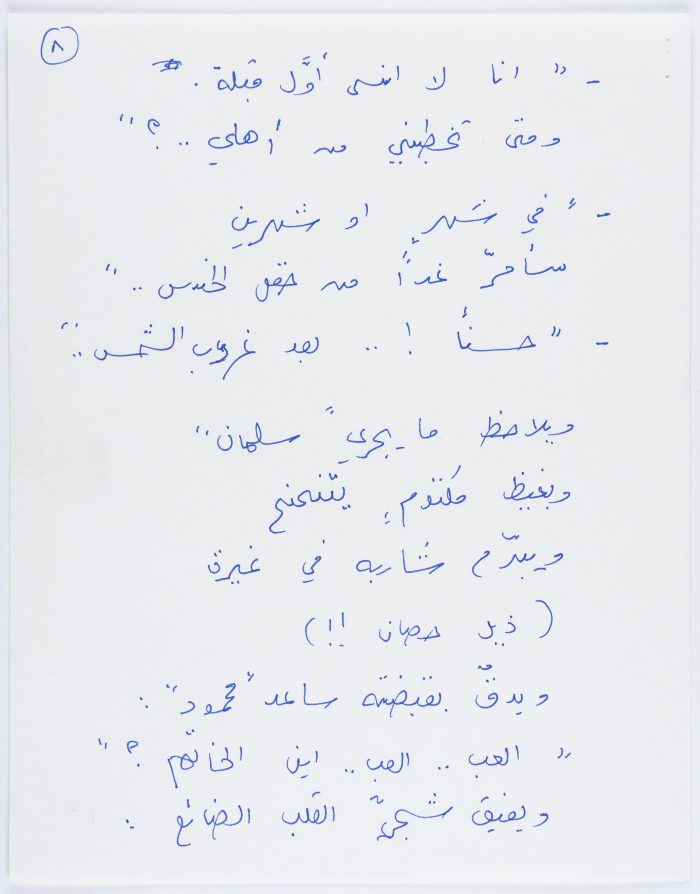 ٨
- " انا لا انسى أوَّل قبلة .
ومتى تخطبني من أهلي .. ؟ "
- " في شَهرٍ او شهرينِ
سأمرّ غداً من حقل الخس .. "
- " حسناً ! .. بعد غروب الشمس .. "
ويلاحظ ما يجري " سلمان "
وبغيظٍ مكتومٍ يتنحنح
ويبرّم شاربه في غيرة
( ذيل حصان !! )
ويدقّ بقبضته ساعد " محمود " :
" العب .. العب .. اين الخاتم ؟ "
ويفيق شجيّ القلب الضائع :